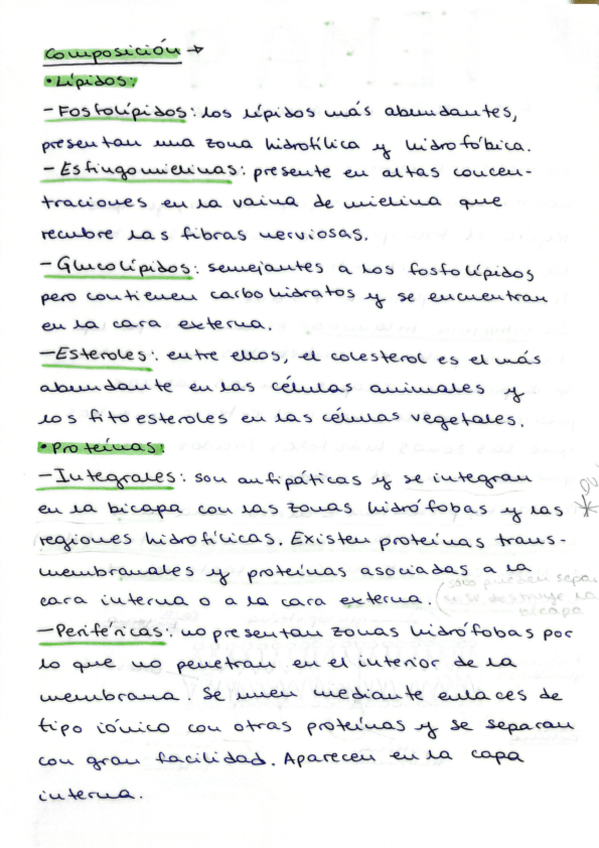 Composición →
• Lípidos:
- Fosfolípidos: los lípidos más abundantes,
presentan una zona hidrofílica y hidrofóbica.
- Esfingomielinas: presente en altas concen-
traciones en la vaina de mielina que
recubre las fibras nerviosas.
- Glucolípidos: semejantes a los fosfolípidos
pero contienen carbohidratos y se encuentran
en la cara externa.
- Esteroles: entre ellos, el colesterol es el más
abundante en las células animales y
los fitoesteroles en las células vegetales.
• Proteínas:
- Integrales: son anfipáticas y se integran
en la bicapa con las zonas hidrófobas y las
regiones hidrofílicas. Existen proteínas trans-
membranales y proteínas asociadas a la
cara interna o a la cara externa. (solo pueden separa
si se destruye la
bicapa
- Periféricas: no presentan zonas hidrófobas por
lo que no penetran en el interior de la
membrana. Se unen mediante enlaces de
tipo iónico con otras proteínas y se separan
con gran facilidad. Aparecen en la capa
interna.